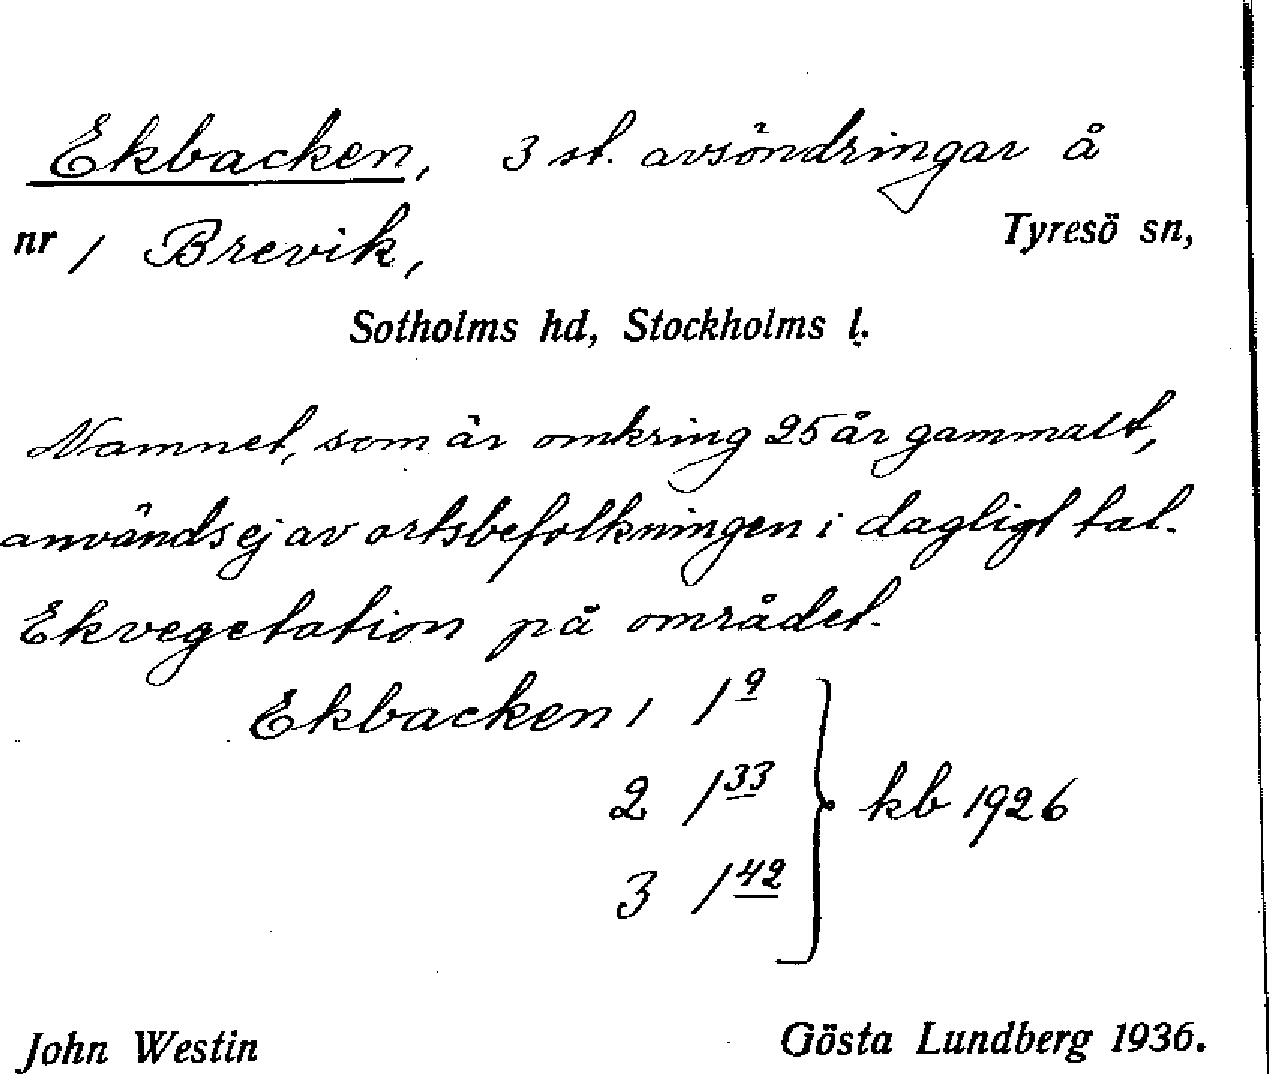 Ekbacken, 3 st. avsöndringar å
nr 1 Brevik, Tyresö sn,
Sotholms hd, Stockholms l.
Namnet, som är omkring 25 år gammalt,
användes ej av ortsbefolkningen i dagligt tal.
Ekvegetation på området.
Ekbacken 1 1⁹
2 1³³ } kb 1926
3 1⁴²
John Westin Gösta Lundberg 1936.